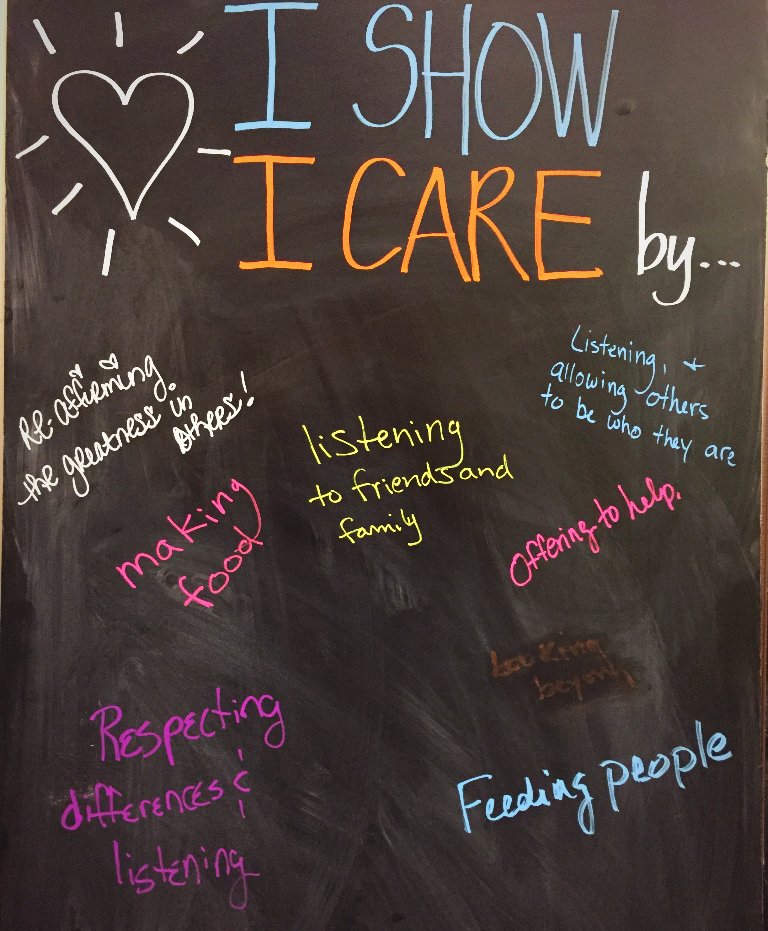 I SHOW
I CARE by...
Re-affirming
the greatness in
others!
Listening, +
allowing others
to be who they are
listening
to friends and
family
making
food
Offering to help.
beyond
Respecting
differences &
listening
Feeding people